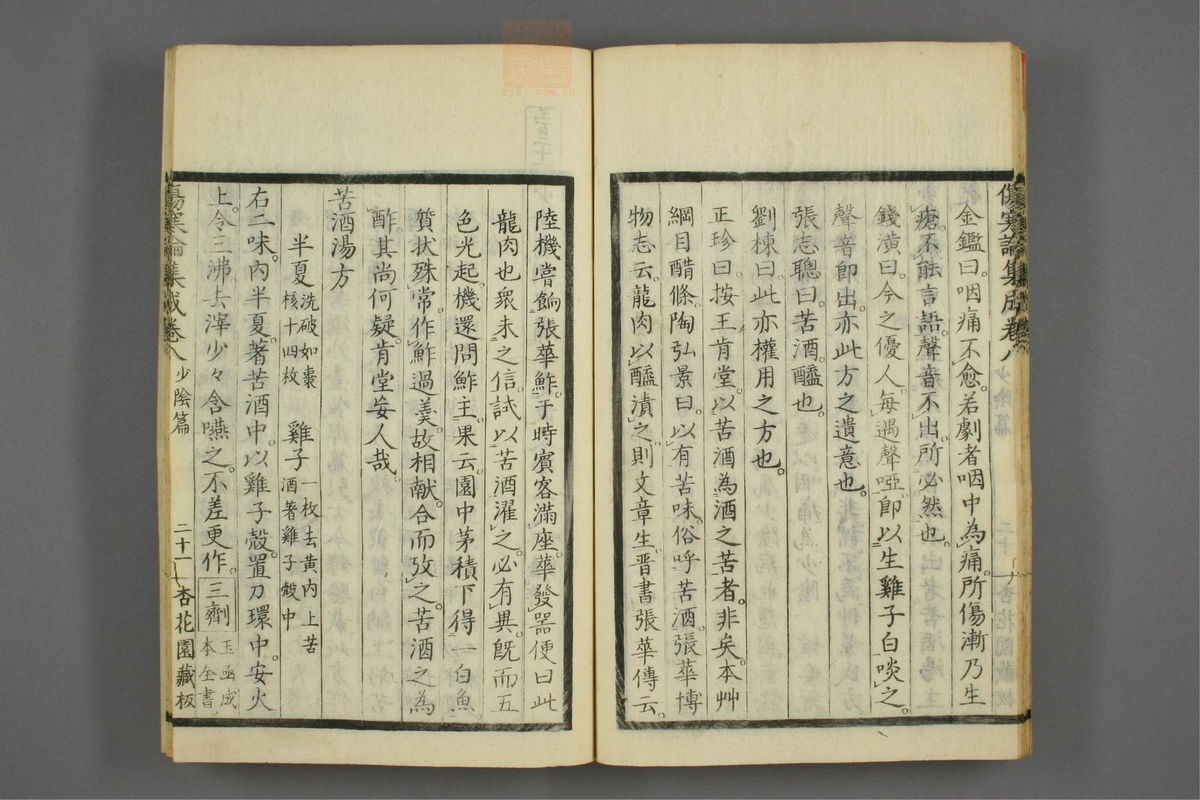 傷寒論集成卷八 少陰篇
金鑑曰。咽痛不愈。若劇者咽中為痛。所傷漸乃生
瘡。不能言語。聲音不出。所必然也。
錢潢曰。今之優人。每遇聲啞。即以生雞子白啖之。
聲音即出。亦此方之遺意也。
張志聰曰。苦酒。醯也。
劉棟曰。此亦權用之方也。
正珍曰。按王肯堂。以苦酒為酒之苦者。非矣。本艸
綱目醋條。陶弘景曰。以有苦味。俗呼苦酒。張華博
物志云。龍肉以醯漬之。則文章生。晋書張華傳云。
陸機嘗餉張華鮓。于時賓客滿座。華發器便曰。此
龍肉也。衆未之信。試以苦酒濯之。必有異。既而五
色光起。機還問鮓主。果云。園中茅積下得一白魚。
質状殊常。作鮓過美。故相献。合而攷之。苦酒之為
酢。其尚何疑。肯堂妄人哉。
苦酒湯方
半夏 洗破如棗核十四枚 雞子 一枚去黄内上苦酒著雞子殼中
右二味。内半夏。著苦酒中。以雞子殼。置刀環中。安火
上。令三沸。去滓。少々含嚥之。不差更作。三劑 玉函成本全書。
傷寒論集成卷八 少陰篇 二十一 杏花園藏板
zysj.com.cn